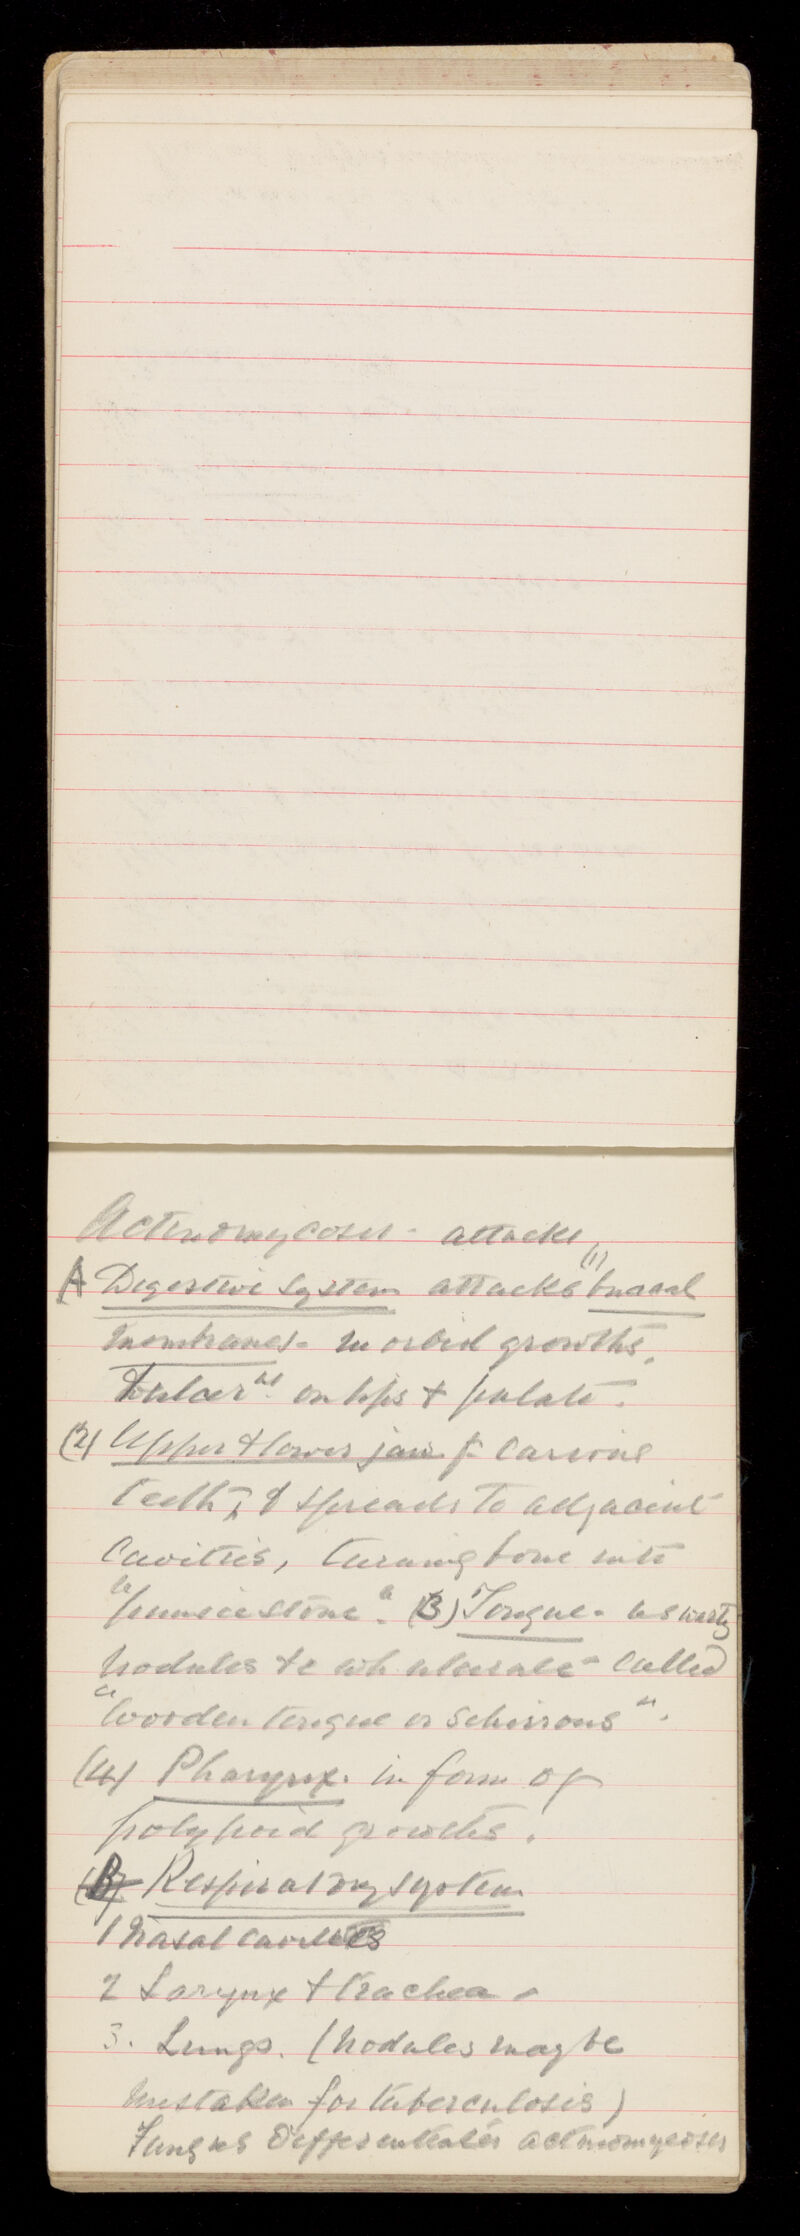 Actinomycosis - attacks
A Digestive system attacks (1) buccal
membranes - morbid growths,
"ulcer" on lips & palate.
(2) Upper & lower jaw f. carious
teeth, & spreads to adjacent
cavities, turning bone into
"pumice stone". (3) Tongue - as warty
nodules wh ulcerate - called
"Wooden tongue or schirrous".
(4) Pharynx. in form of
polypoid growths.
(B) Respiratory system
1 Nasal cavities
2 Larynx & trachea -
3. Lungs. (nodules may be
mistaken for tuberculosis)
Fungus differentiates actinomycosis